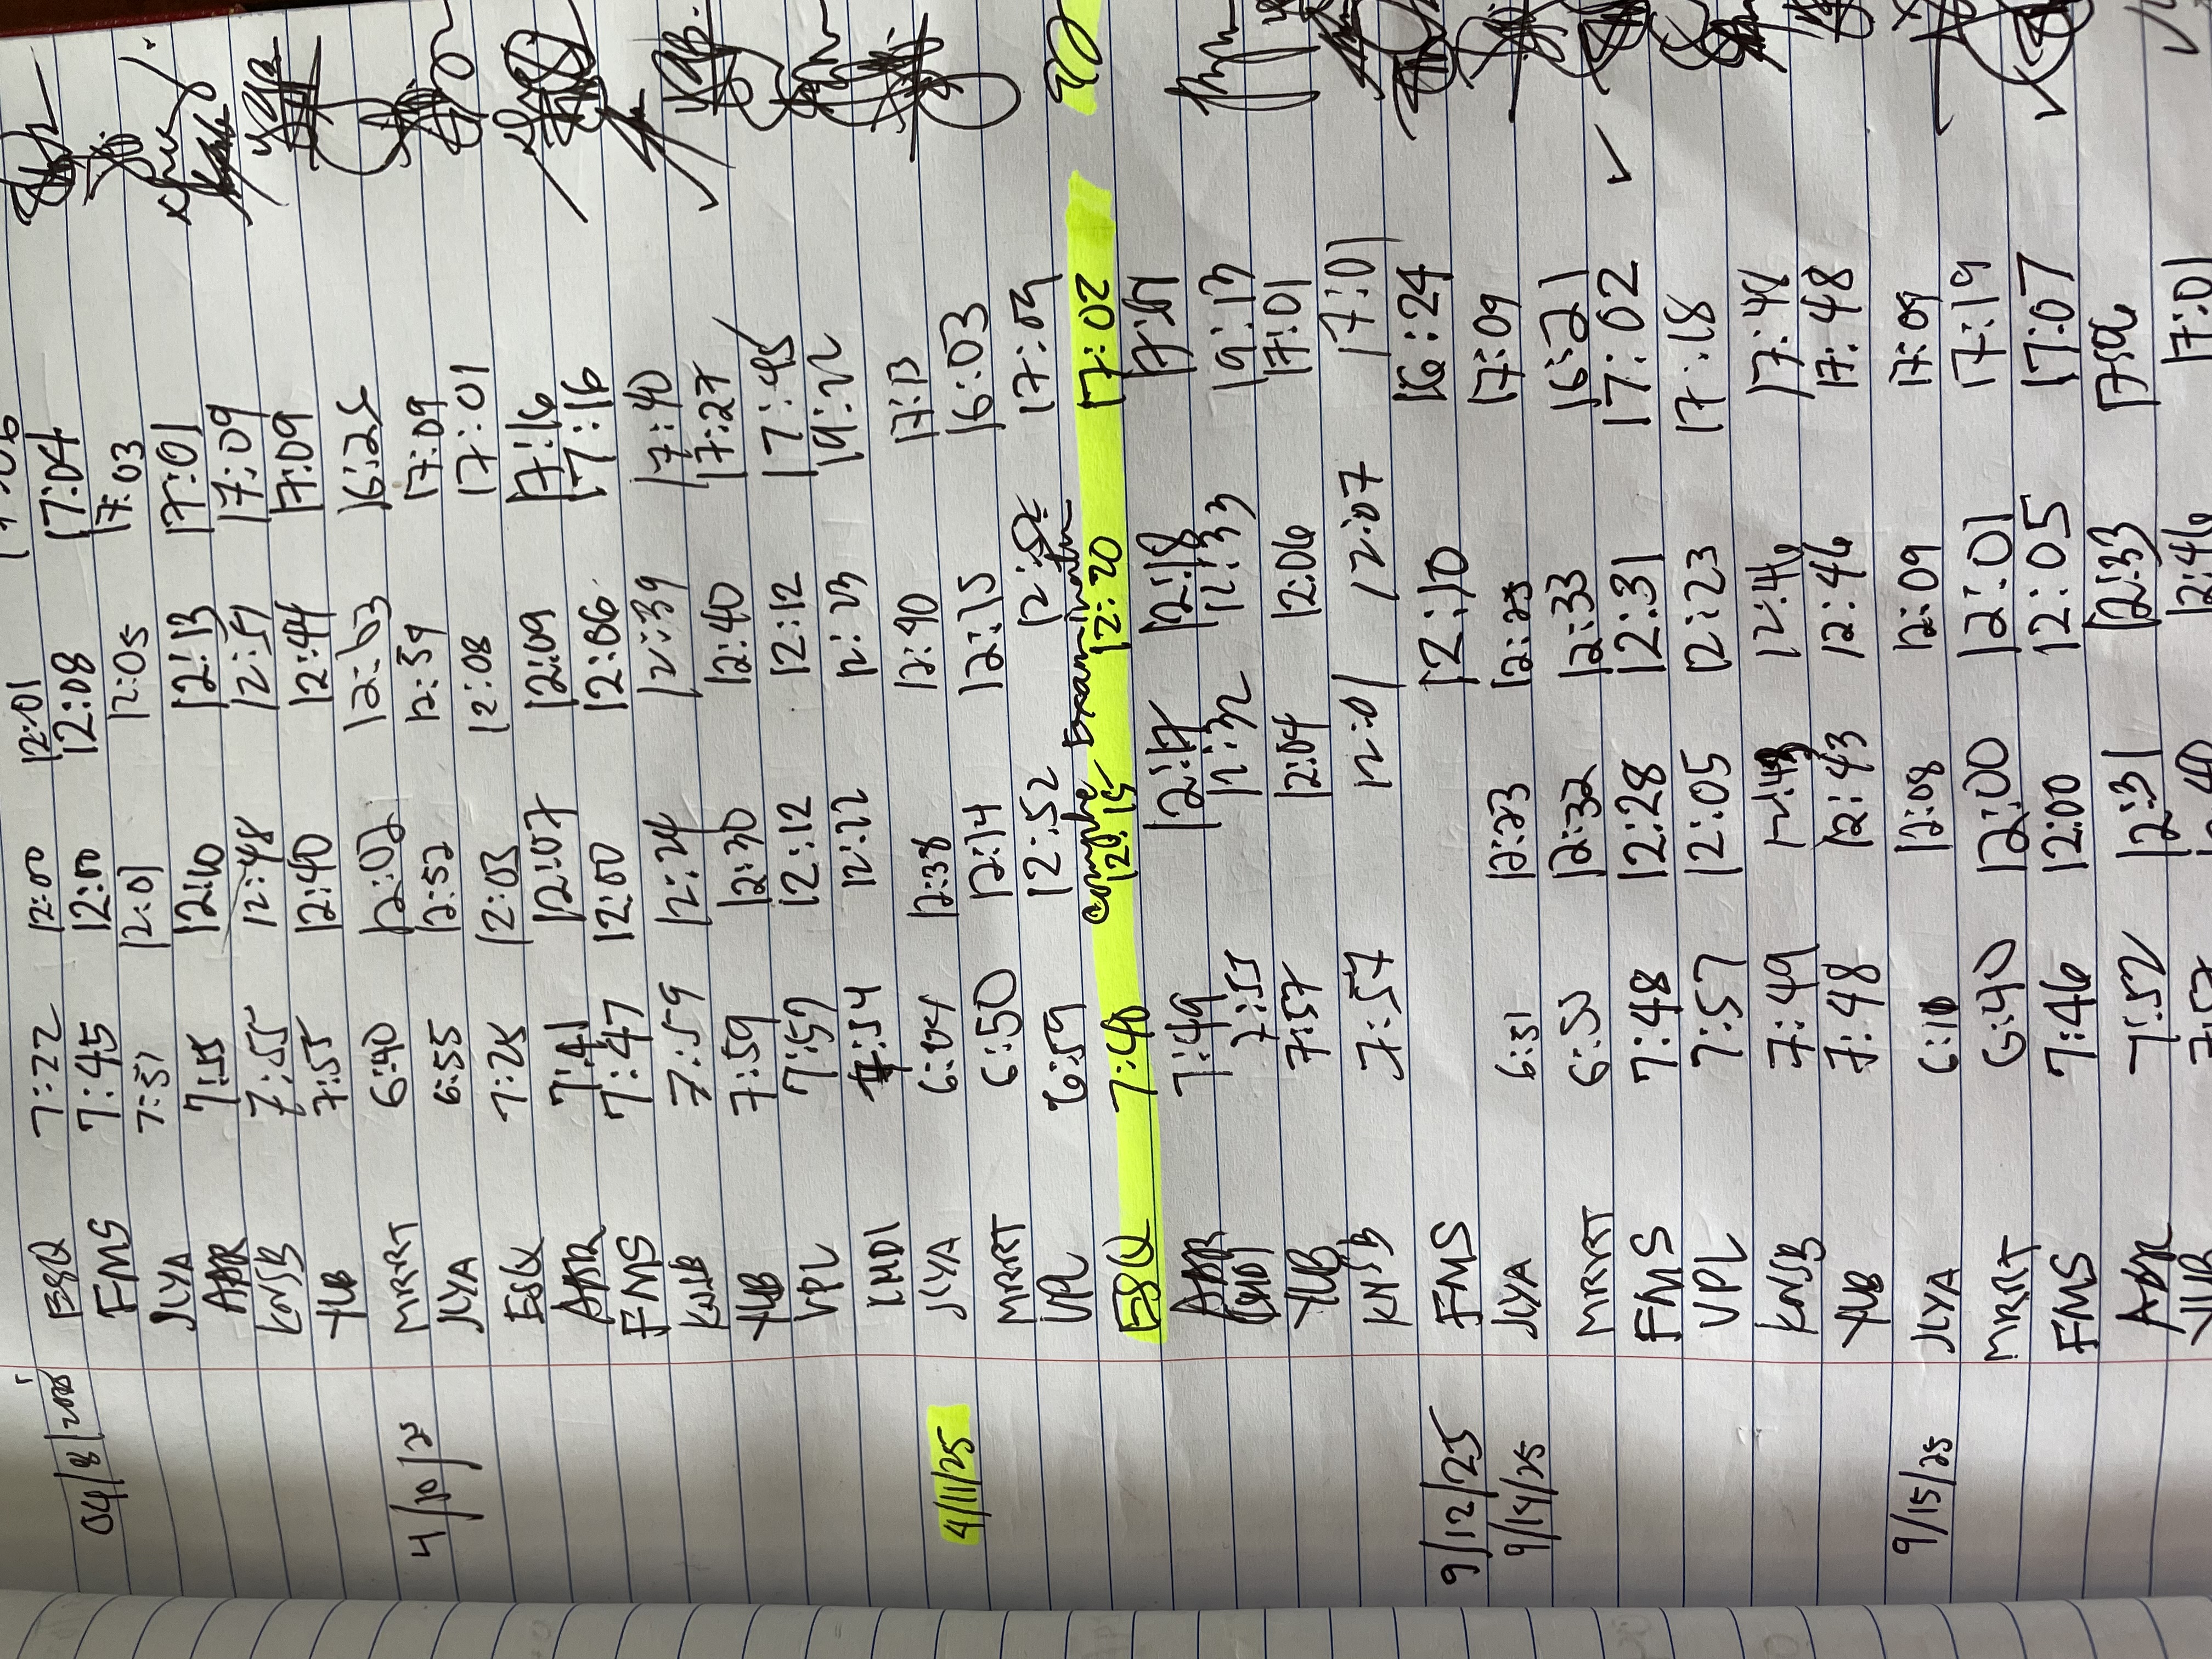 ESQ 7:22 12:00 12:01
04/8/2025 FMS 7:45 12:00 12:08 17:04
JLYA 7:51 12:01 12:05 17:03
ABR 7:55 12:10 12:13 17:01
KNJB 7:55 12:48 12:51 17:09
YUB 7:55 12:40 12:44 17:09
4/10/25 MRRT 6:40 12:02 12:03 16:25
JLYA 6:55 12:52 12:59 17:09
ESQ 7:25 12:05 12:08 17:01
ABR 7:41 12:07 12:09 17:16
FMS 7:47 12:00 12:06 17:16
KNJB 7:59 12:24 12:39 17:40
YUB 7:59 12:30 12:40 17:27
VPL 7:57 12:12 12:12 17:45
LMDI 7:54 12:22 12:23 19:22
4/11/25 JLYA 12:38 12:40 17:13
MRRT 6:50 12:14 12:15 16:03
VPL 6:59 12:52 17:04
compre Examination
ESQ 7:40 12:15 12:20 17:02
ABR 7:49 12:17 12:18
LMDI 7:55 12:32 12:33 19:13
YUB 7:57 12:04 12:06 17:01
KNJB 7:57 12:01 12:07 17:01
9/12/25 FMS 12:10 16:24
9/14/25 JLYA 6:51 12:23 12:25 17:09
MRRT 6:50 12:32 12:33 16:21
FMS 7:48 12:28 12:31 17:02
VPL 7:57 12:05 12:23 17:18
KNJB 7:49 12:43 12:46 17:48
YUB 7:48 12:43 12:46 17:48
9/15/25 JLYA 6:10 12:08 12:09 17:09
MRRT 6:40 12:00 12:01 17:19
FMS 7:46 12:00 12:05 17:07
ABR 7:52 12:31 12:33
YUB 7:57 12:40 12:46 17:01